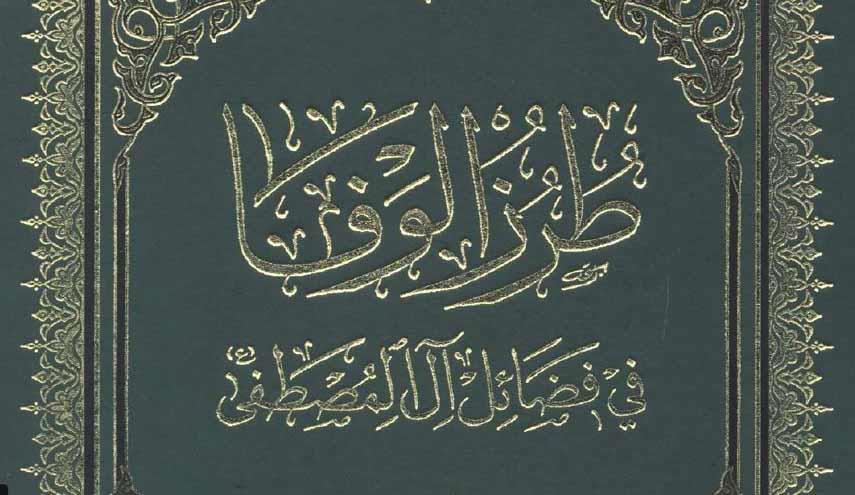 طُرُزُ الوَفَا
في فَضَائِل آل المُصْطَفىٰ (ع)